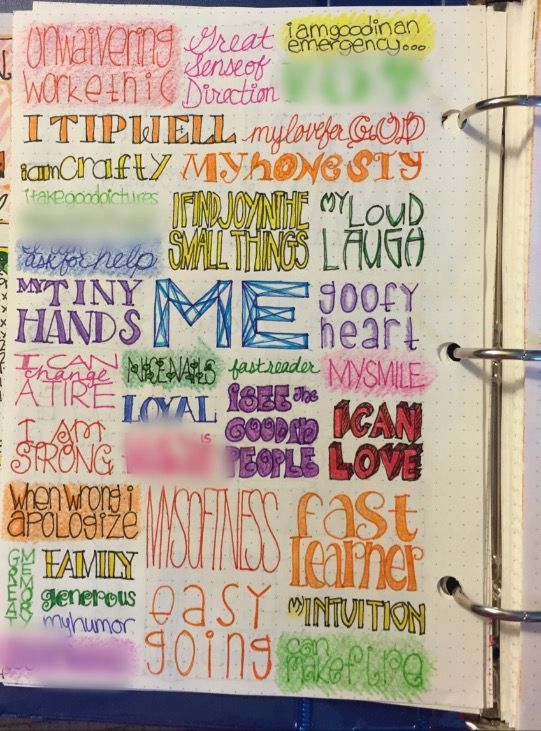 unwaivering
work ethic
Great
Sense of
Direction
i am good in an
emergency...
I TIP WELL
my love for GOD
i am crafty
MY hONESTY
i take good pictures
ask for help
I FIND JOY IN THE
SMALL THINGS
MY LOUD
LAUGH
MY TINY
HANDS
ME
goofy
heart
I CAN
change
A TIRE
NICE NAILS
fast reader
MY SMILE
LOYAL
I SEE the
GOOD IN
PEOPLE
I CAN
LOVE
I AM
STRONG
IS
when wrong i
apologize
MY SOFTNESS
fast
learner
GREAT
MEMORY
FAMILY
generous
my humor
easy
going
MY INTUITION
can
make fire